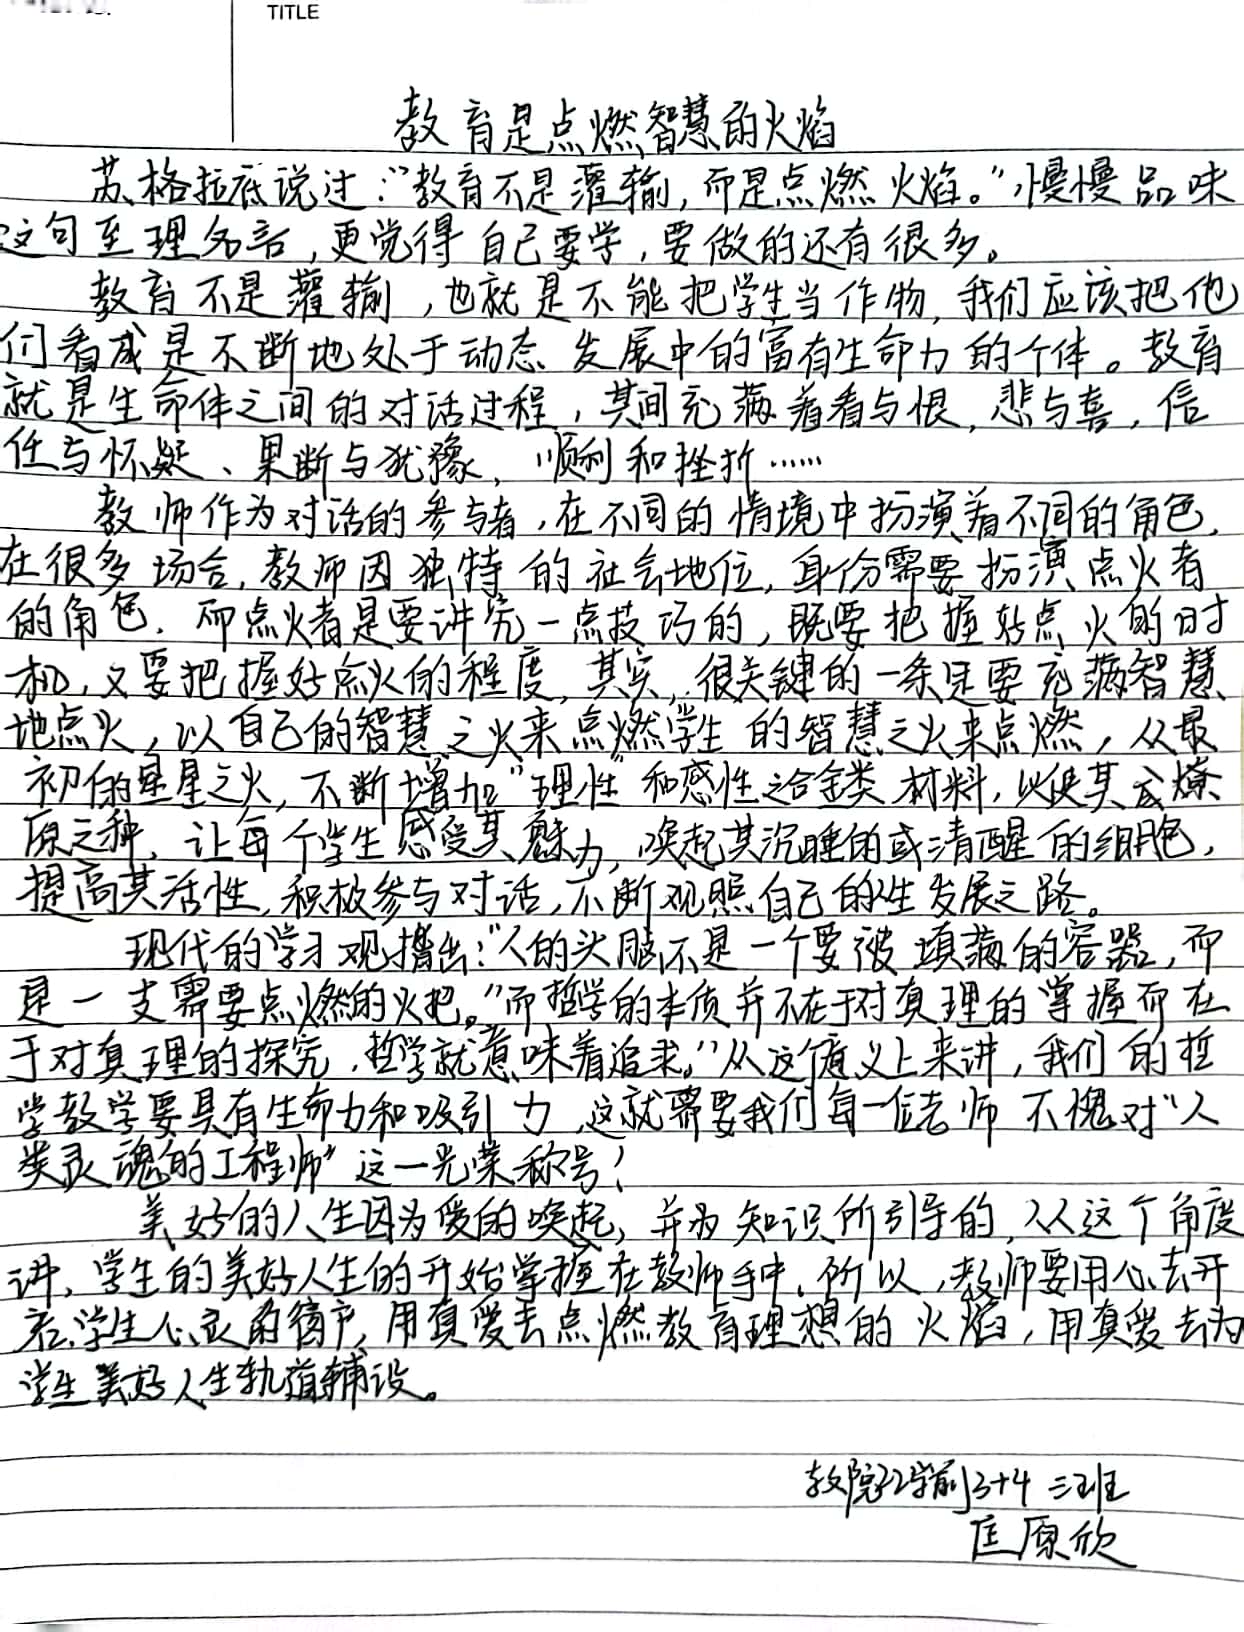 TITLE
教育是点燃智慧的火焰
苏格拉底说过：“教育不是灌输，而是点燃火焰。”慢慢品味
这句至理名言，更觉得自己要学，要做的还有很多。
教育不是灌输，也就是不能把学生当作物，我们应该把他
们看成是不断地处于动态发展中的富有生命力的个体。教育
就是生命体之间的对话过程，其间充满着着与恨，悲与喜，信
任与怀疑、果断与犹豫，顺利和挫折……
教师作为对话的参与者，在不同的情境中扮演着不同的角色，
在很多场合，教师因独特的社会地位，身份需要扮演点火者
的角色，而点火者是要讲究一点技巧的，既要把握好点火的时
机，又要把握好点火的程度，其实，很关键的一条是要充满智慧
地点火，以自己的智慧之火来点燃学生的智慧之火来点燃，从最
初的星星之火，不断增加“理性”和感性之合金类材料，以使其成燎
原之种，让每个学生感受其魅力，唤起其沉睡的或清醒的细胞，
提高其活性，积极参与对话，不断观照自己的生发展之路。
现代的学习观指出：“人的头脑不是一个要被填满的容器，而
是一支需要点燃的火把。”而哲学的本质并不在于对真理的掌握而在
于对真理的探究，哲学就意味着追求。”从这个意义上来讲，我们的哲
学教学要具有生命力和吸引力，这就需要我们每一位老师不愧对“人
类灵魂的工程师”这一光荣称号！
美好的人生因为爱的唤起，并为知识所引导的，从这个角度
讲，学生的美好人生的开始掌握在教师手中，所以，教师要用心去开
启学生心灵的窗户，用真爱去点燃教育理想的火焰，用真爱去为
学生美好人生轨道铺设。
教院22学前3+4 三班
匡原欣